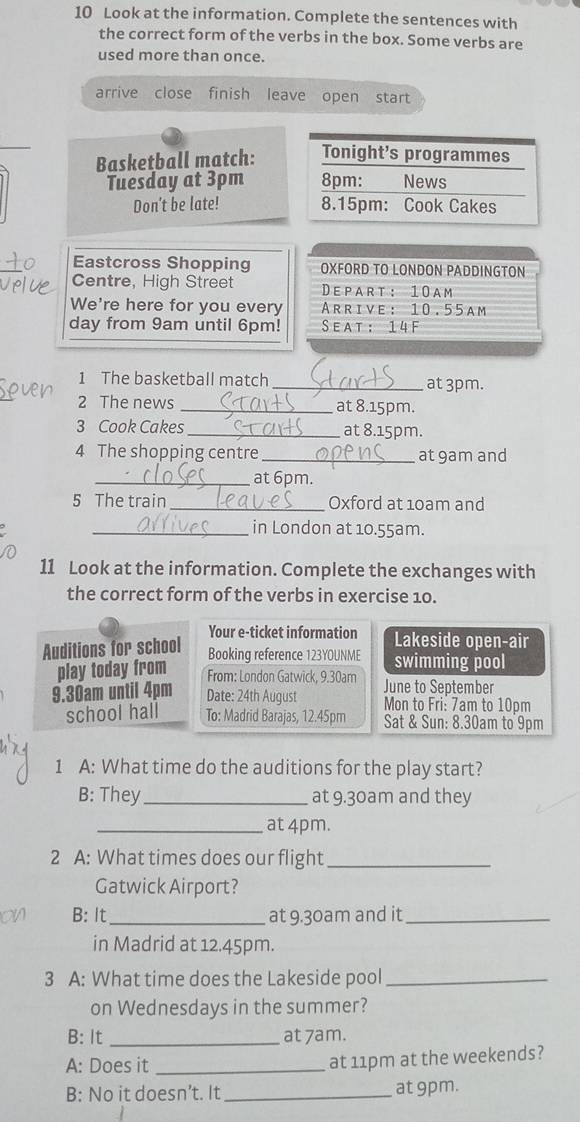 10 Look at the information. Complete the sentences with
the correct form of the verbs in the box. Some verbs are
used more than once.
arrive close finish leave open start
Basketball match:
Tuesday at 3pm
Don't be late!
Tonight's programmes
8pm: News
8.15pm: Cook Cakes
to
Eastcross Shopping
Centre, High Street
We're here for you every
day from 9am until 6pm!
OXFORD TO LONDON PADDINGTON
DEPART: 10AM
ARRIVE: 10.55AM
SEAT: 14F
velve
seven
1 The basketball match Starts at 3pm.
2 The news STarts at 8.15pm.
3 Cook Cakes STarts at 8.15pm.
4 The shopping centre opens at 9am and
closes at 6pm.
5 The train leaves Oxford at 10am and
arrives in London at 10.55am.
11 Look at the information. Complete the exchanges with
the correct form of the verbs in exercise 10.
Auditions for school
play today from
9.30am until 4pm
school hall
Your e-ticket information
Booking reference 123YOUNME
From: London Gatwick, 9.30am
Date: 24th August
To: Madrid Barajas, 12.45pm
Lakeside open-air
swimming pool
June to September
Mon to Fri: 7am to 10pm
Sat & Sun: 8.30am to 9pm
1 A: What time do the auditions for the play start?
B: They ____ at 9.30am and they
____ at 4pm.
2 A: What times does our flight ____
Gatwick Airport?
on
B: It ____ at 9.30am and it ____
in Madrid at 12.45pm.
3 A: What time does the Lakeside pool ____
on Wednesdays in the summer?
B: It ____ at 7am.
A: Does it ____ at 11pm at the weekends?
B: No it doesn't. It ____ at 9pm.